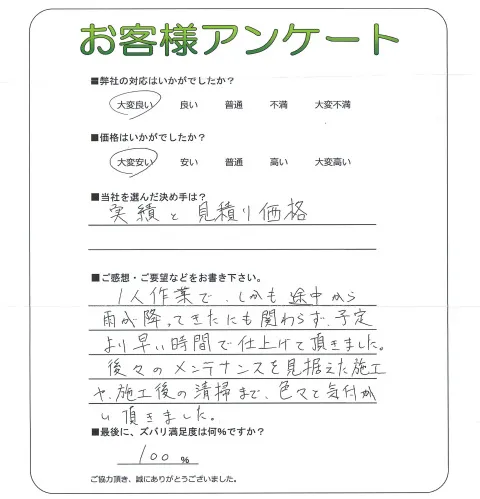 お客様アンケート
■弊社の対応はいかがでしたか？
大変良い 良い 普通 不満 大変不満
■価格はいかがでしたか？
大変安い 安い 普通 高い 大変高い
■当社を選んだ決め手は？
実績と見積り価格
■ご感想・ご要望などをお書き下さい。
1人作業で、しかも途中から
雨が降ってきたにも関わらず、予定
より早い時間で仕上げて頂きました。
後々のメンテナンスを見据えた施工
や、施工後の清掃まで、色々と気付か
い頂きました。
■最後に、ズバリ満足度は何％ですか？
100 ％
ご協力頂き、誠にありがとうございました。